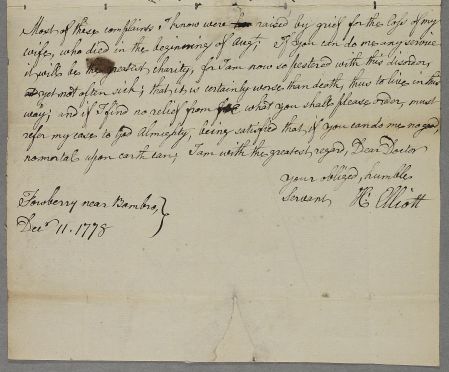 Most of these complaints I know were raised by grief for the loss of my
wife, who died in the beginning of Augt; If you can do me any service
it will be the greatest charity, for I am now so pestered with this disorder,
yet not often sick; that it is certainly worse than death, thus to live in this
way; and if I find no relief from what you shall please order, must
refer my case to God Almighty, being satisfied that if you can do me no good,
no mortal upon earth can; I am with the greatest regard, Dear Doctor
your obliged, humble
Servant Hy Elliott
Fowberry near Bambro,
Decr 11. 1778